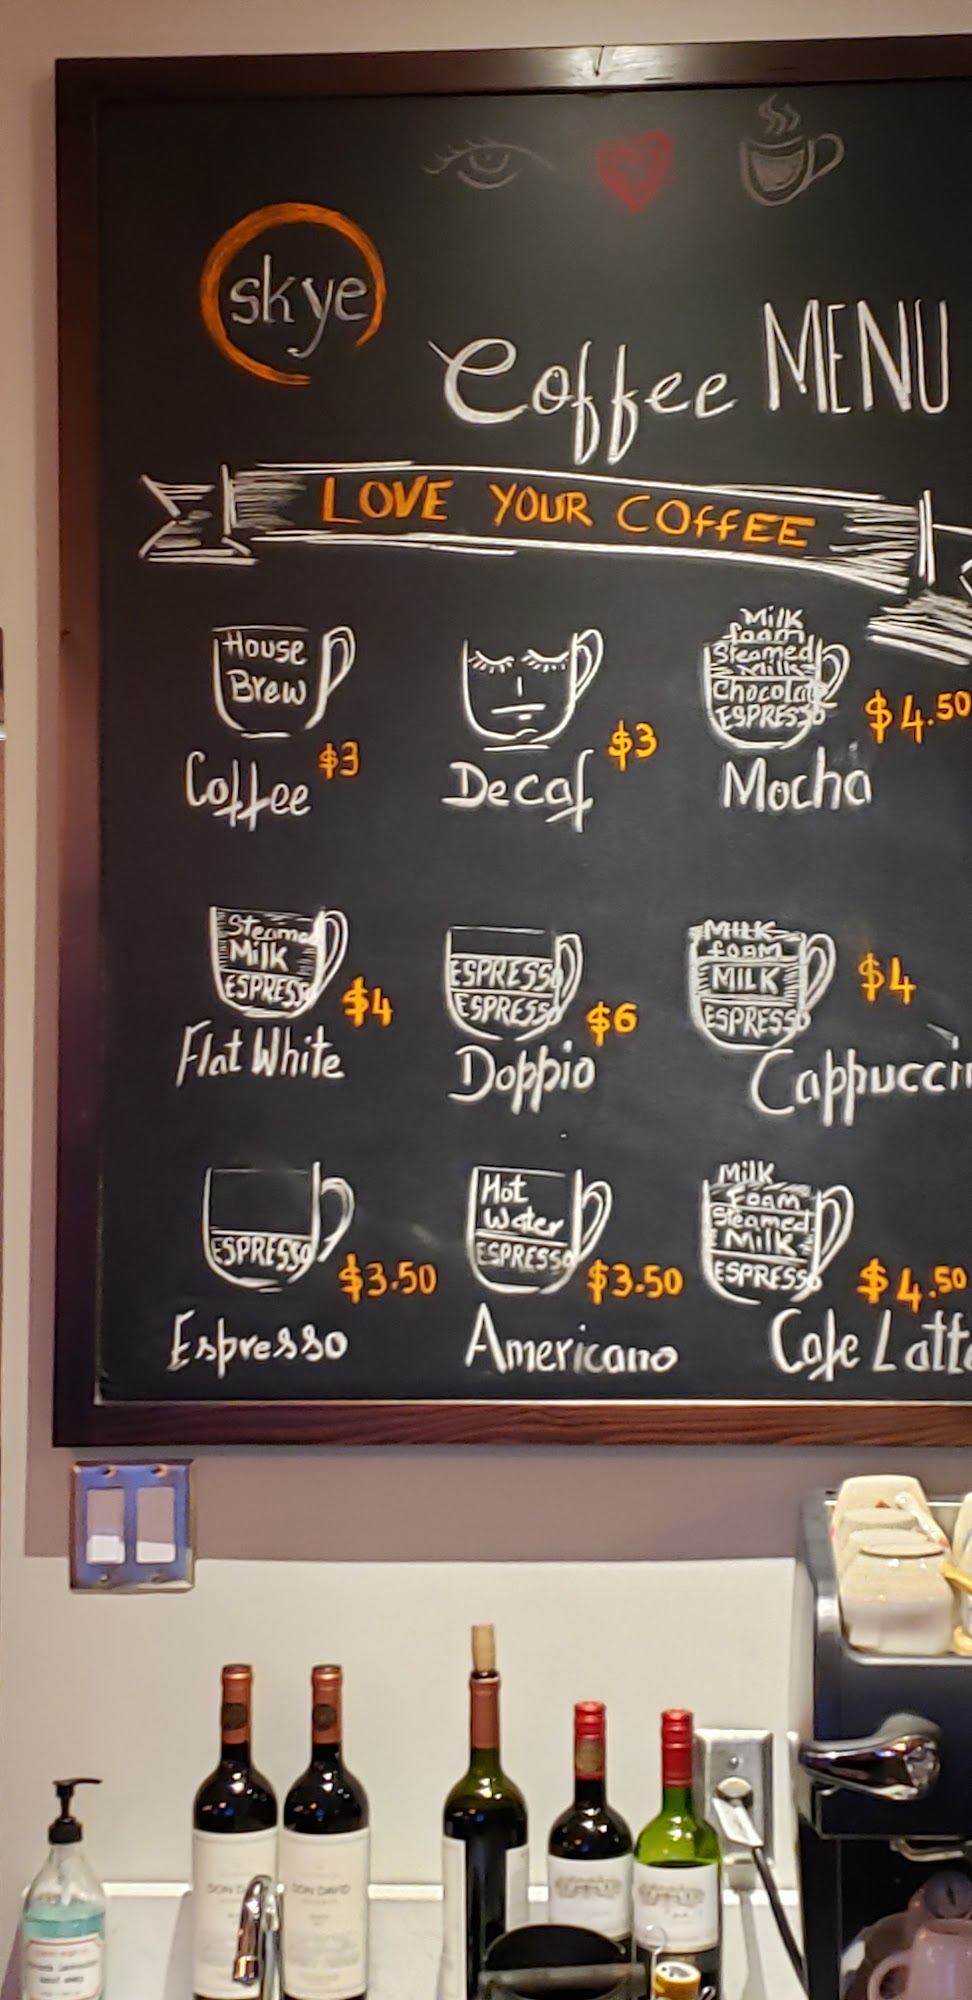 skye
Coffee MENU
LOVE YOUR COFFEE
House
Brew
$3
Coffee
$3
Decaf
Milk
foam
Steamed
Milk
Chocolat
ESPRESSO
$4.50
Mocha
Steamed
Milk
ESPRESSO
$4
Flat White
ESPRESSO
ESPRESSO
$6
Doppio
MILK
foam
MILK
ESPRESSO
$4
Cappuccin
ESPRESSO
$3.50
Espresso
Hot
Water
ESPRESSO
$3.50
Americano
Milk
Foam
Steamed
Milk
ESPRESSO
$4.50
Cafe Latte
DON DAVID
DON DAVID